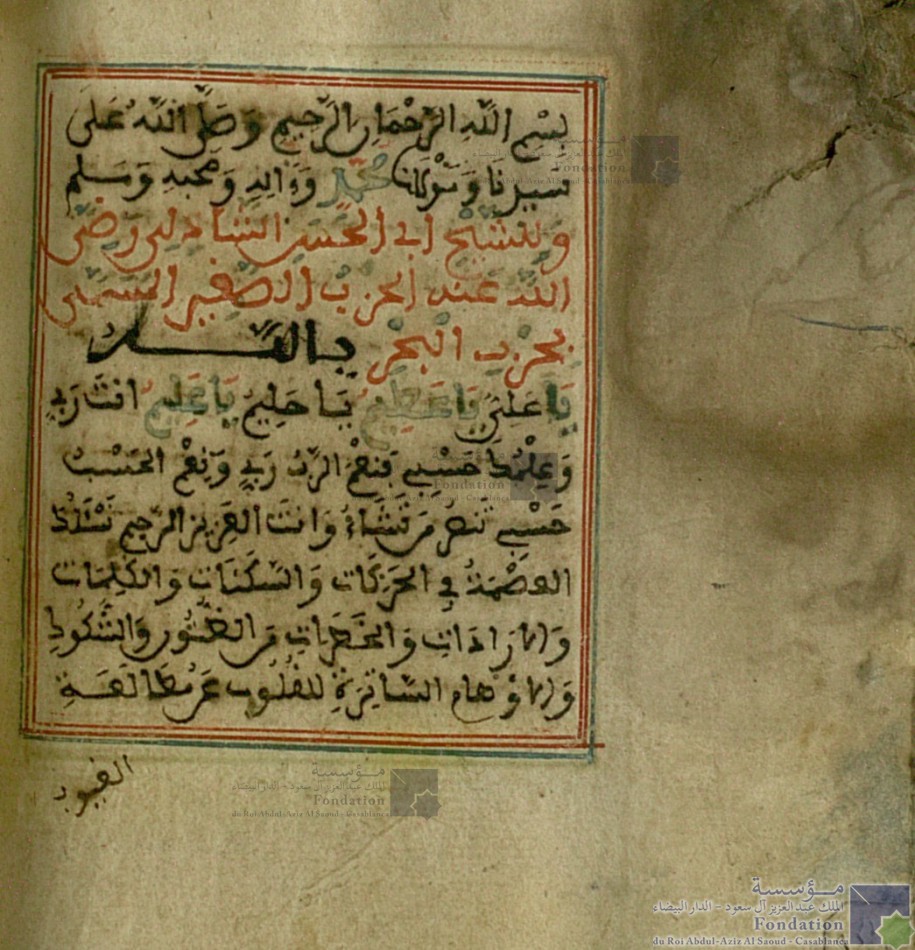 بِسْمِ اللَّهِ الرَّحْمَٰنِ الرَّحِيمِ وَصَلَّى اللَّهُ عَلَى
سَيِّدِنَا وَمَوْلَانَا مُحَمَّدٍ وَءَالِهِ وَصَحْبِهِ وَسَلَّمَ
وَلِلشَّيْخِ أَبِي الْحَسَنِ الشَّاذِلِي رَضِيَ
اللَّهُ عَنْهُ الْحِزْبُ الصَّغِيرُ الْمُسَمَّى
بِحِزْبِ الْبَحْرِ يَا اللَّهُ
يَا عَلِيُّ يَا عَظِيمُ يَا حَلِيمُ يَا عَلِيمُ أَنْتَ رَبِّي
وَعِلْمُكَ حَسْبِي فَنِعْمَ الرَّبُّ رَبِّي وَنِعْمَ الْحَسْبُ
حَسْبِي تَنْصُرُ مَنْ تَشَاءُ وَأَنْتَ الْعَزِيزُ الرَّحِيمُ نَسْئَلُكَ
الْعِصْمَةَ فِي الْحَرَكَاتِ وَالسَّكَنَاتِ وَالْكَلِمَاتِ
وَالْإِرَادَاتِ وَالْخَطَرَاتِ مِنَ الظُّنُونِ وَالشُّكُوكِ
وَالْأَوْهَامِ السَّاتِرَةِ لِلْقُلُوبِ عَنْ مُطَالَعَةِ
الغيوب
مؤسسة
الملك عبد العزيز آل سعود - الدار البيضاء
Fondation
du Roi Abdul-Aziz Al Saoud - Casablanca
مؤسسة
الملك عبد العزيز آل سعود - الدار البيضاء
Fondation
du Roi Abdul-Aziz Al Saoud - Casablanca